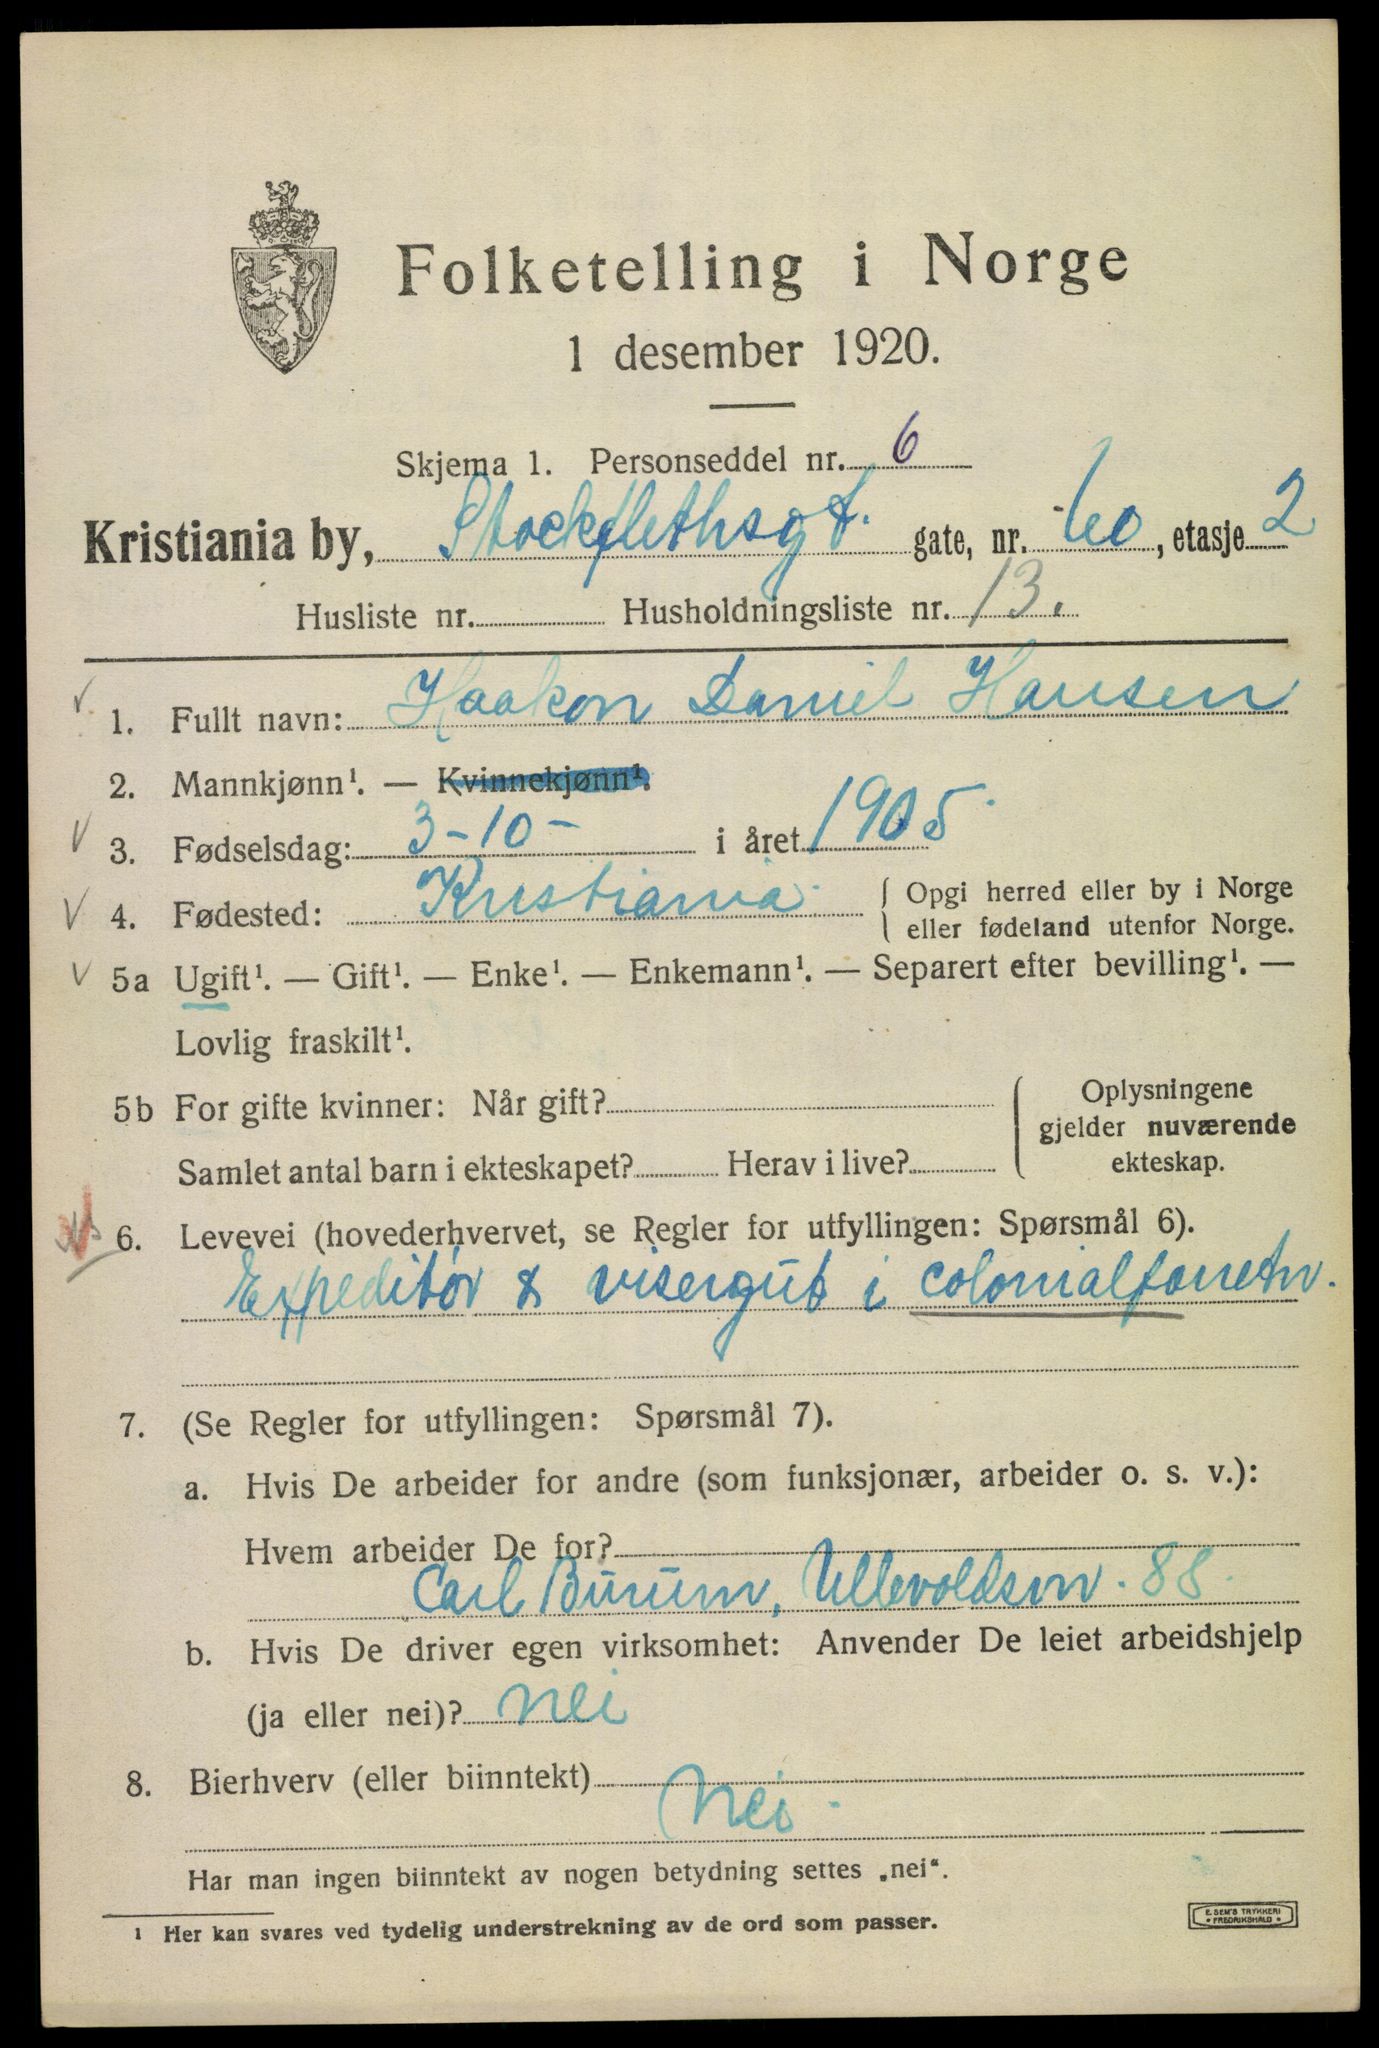 Folketelling i Norge
1 desember 1920.
Skjema 1. Personseddel nr. 6
Kristiania by, Stockflethsgt. gate, nr. 60, etasje 2
Husliste nr. Husholdningsliste nr. 13.
1. Fullt navn: Haakon Daniel Hansen
2. Mannkjønn¹. — Kvinnekjønn¹.
3. Fødselsdag: 3-10- i året 1905
4. Fødested: Kristiania. { Opgi herred eller by i Norge
eller fødeland utenfor Norge.
5a Ugift¹. — Gift¹. — Enke¹. — Enkemann¹. — Separert efter bevilling¹. —
Lovlig fraskilt¹.
5b For gifte kvinner: Når gift? Oplysningene
gjelder nuværende
Samlet antal barn i ekteskapet? Herav i live? ekteskap.
6. Levevei (hovederhvervet, se Regler for utfyllingen: Spørsmål 6).
Expeditør & visergut i colonialforretn.
7. (Se Regler for utfyllingen: Spørsmål 7).
a. Hvis De arbeider for andre (som funksjonær, arbeider o. s. v.):
Hvem arbeider De for?
Carl Burum, Ullevoldsvn. 88.
b. Hvis De driver egen virksomhet: Anvender De leiet arbeidshjelp
(ja eller nei)? nei
8. Bierhverv (eller biinntekt)
Nei.
Har man ingen biinntekt av nogen betydning settes „nei“.
1 Her kan svares ved tydelig understrekning av de ord som passer.
E. SEM'S TRYKKERI
• FREDRIKSHALD •